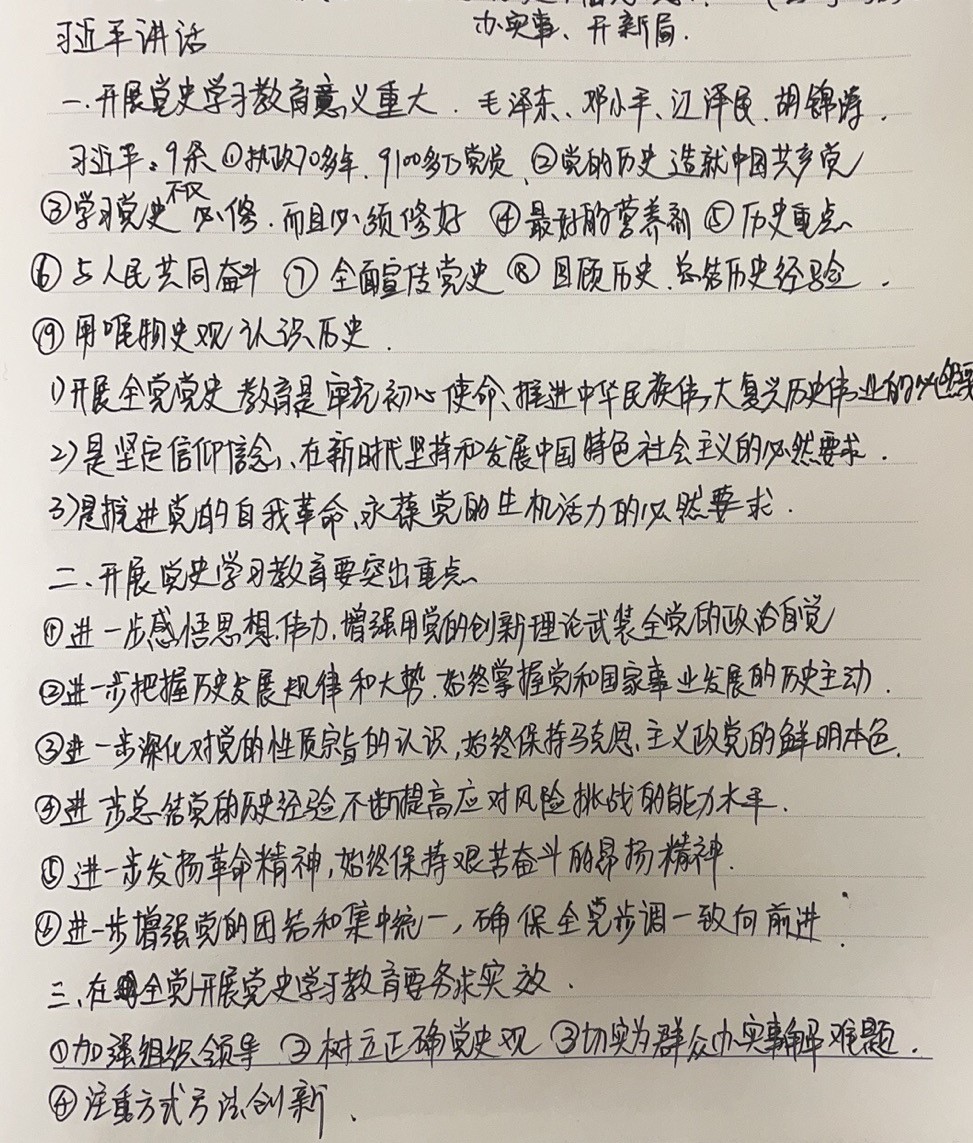 办实事、开新局.
习近平讲话
一.开展党史学习教育意义重大. 毛泽东、邓小平、江泽民.胡锦涛.
习近平:9条 ①执政70多年.9100多万党员、②党的历史造就中国共产党
③学习党史不仅必修.而且必须修好 ④最好的营养剂 ⑤历史重点
⑥与人民共同奋斗 ⑦全面宣传党史 ⑧回顾历史.总结历史经验.
⑨用唯物史观认识历史.
1)开展全党党史教育是牢记初心使命、推进中华民族伟大复兴历史伟业的必然要
2)是坚定信仰信念、在新时代坚持和发展中国特色社会主义的必然要求.
3)是推进党的自我革命、永葆党的生机活力的必然要求.
二、开展党史学习教育要突出重点
①进一步感悟思想伟力.增强用党的创新理论武装全党的政治自觉
②进一步把握历史发展规律和大势.始终掌握党和国家事业发展的历史主动.
③进一步深化对党的性质宗旨的认识,始终保持马克思主义政党的鲜明本色.
④进步总结党的历史经验不断提高应对风险挑战的能力水平.
⑤进一步发扬革命精神,始终保持艰苦奋斗的昂扬精神.
⑥进一步增强党的团结和集中统一,确保全党步调一致向前进.
三、在全党开展党史学习教育要务求实效.
①加强组织领导 ②树立正确党史观 ③切实为群众办实事解难题.
④注重方式方法创新.